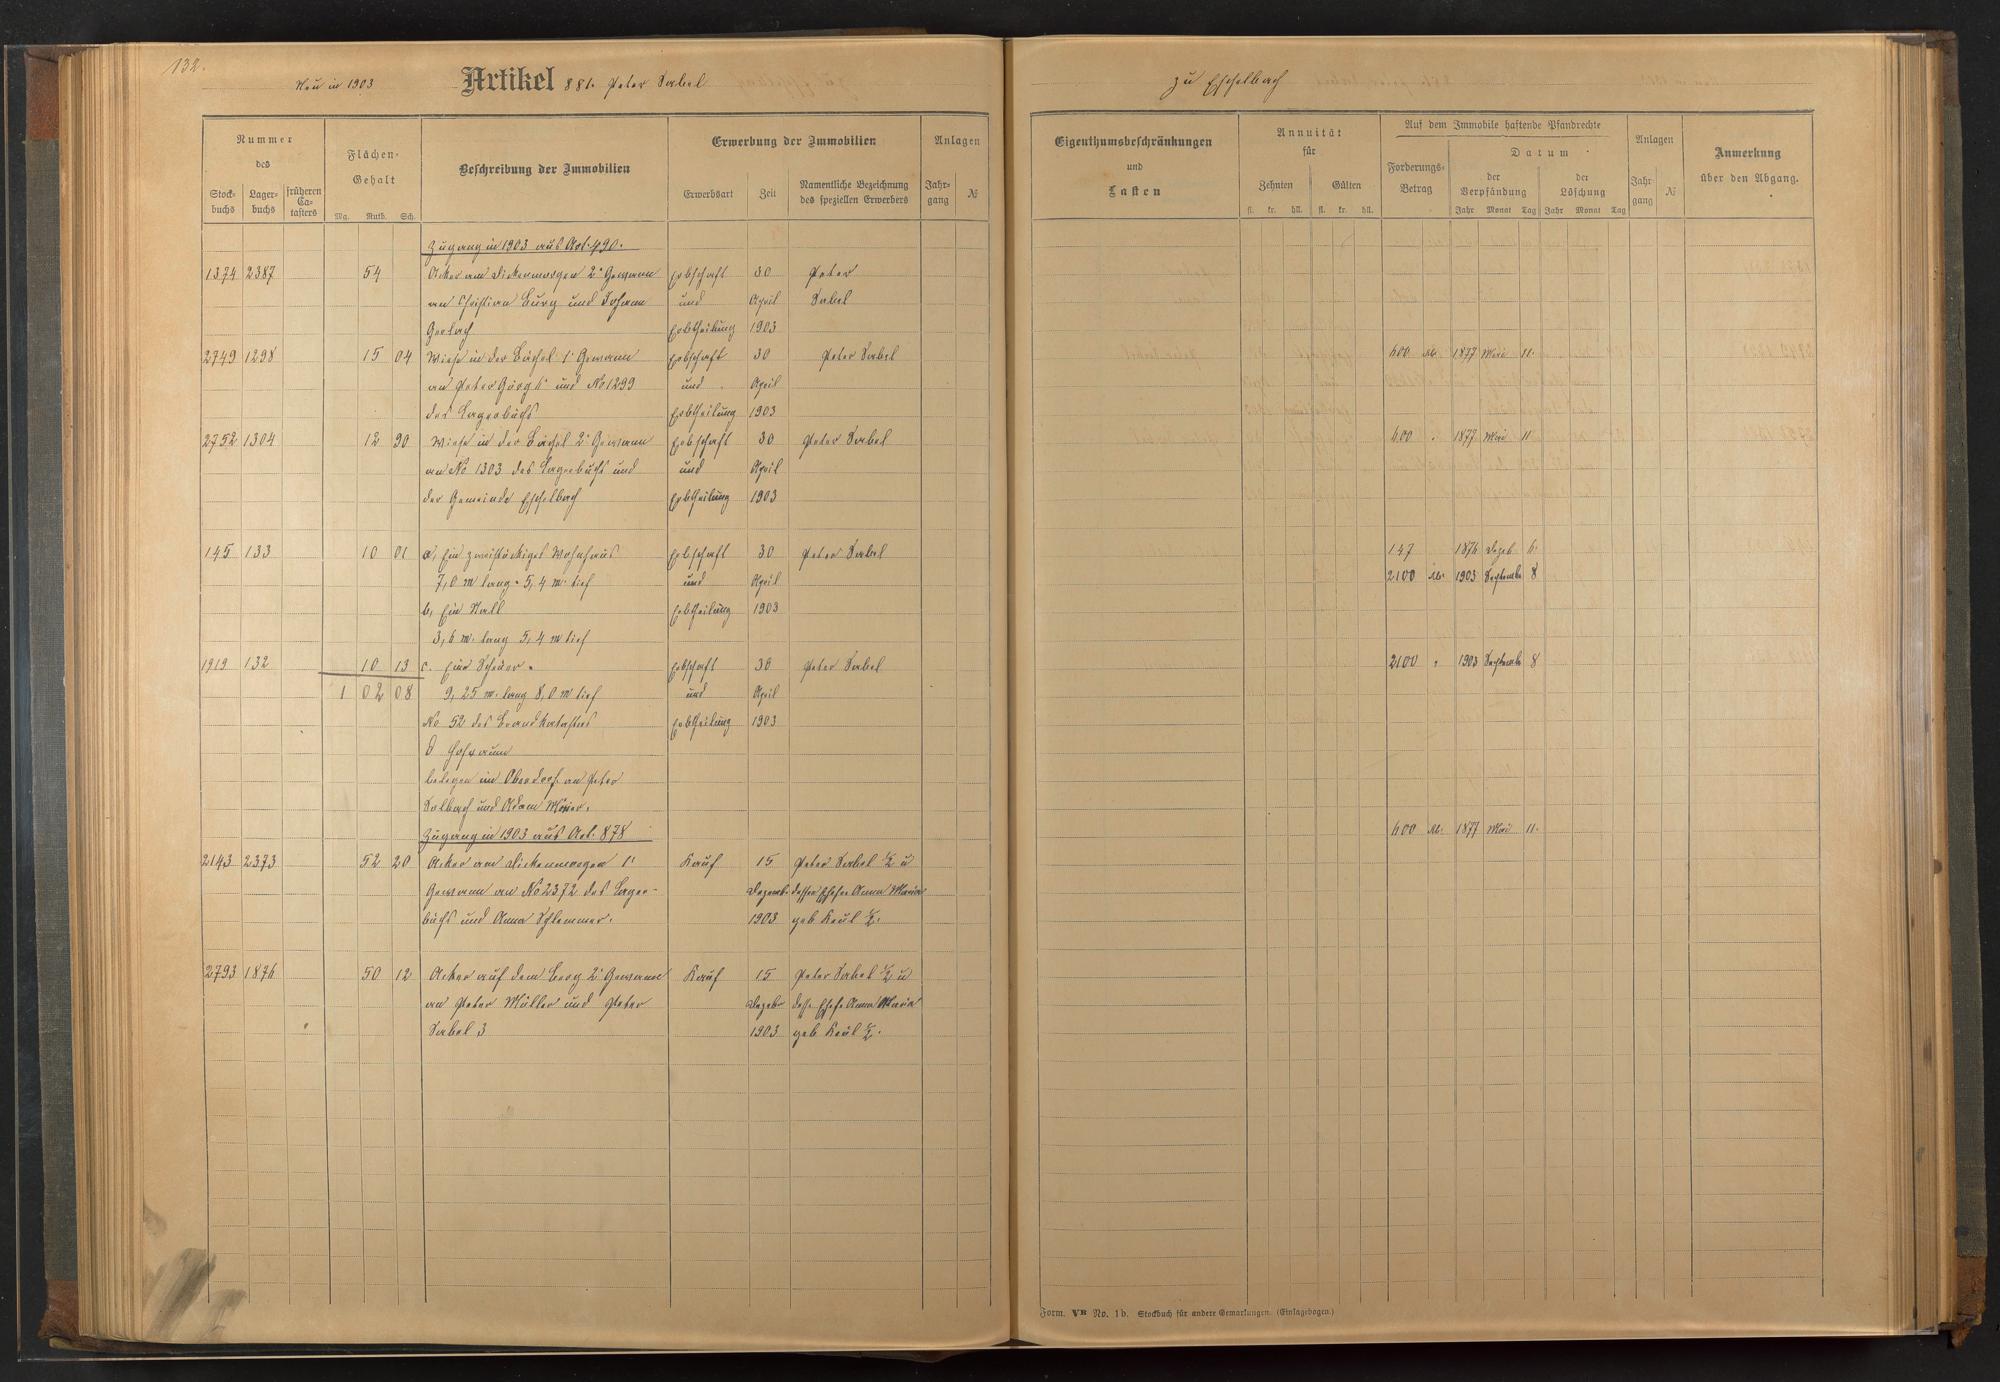 132.
Neu in 1903 Artikel 881. Peter Sabel
Nummer des
Stock-buchs Lager-buchs früheren Ca-tasters
Flächen-Gehalt
Mg. Ruth. Sch.
Beschreibung der Immobilien
Erwerbung der Immobilien
Erwerbsart Zeit Namentliche Bezeichnung des speziellen Erwerbers
Anlagen
Jahr-gang №
Zugang in 1903 aus Art. 490.
1374 2387 54 Acker am Dickenmorgen 2' Gewann Erbschaft 30 Peter
an Christian Burg und Johann und April Sabel
Gerlach Erbtheilung 1903
2749 1298 15 04 Wiese in der 1' Gewann Erbschaft 30 Peter Sabel
an Peter und No 1299 und April
des Lagerbuchs Erbtheilung 1903
2752 1304 12 90 Wiese in der 2' Gewann Erbschaft 30 Peter Sabel
an No 1303 des Lagerbuchs und und April
der Gemeinde Eschelbach Erbtheilung 1903
145 133 10 01 a, Ein zweistöckiges Wohnhaus Erbschaft 30 Peter Sabel
7,0 m lang 5,4 m tief und April
b, Ein Stall Erbtheilung 1903
3,6 m. lang 5,4 m tief
1919 132 10 13 c. Eine Scheuer Erbschaft 30 Peter Sabel
1 02 08 9,25 m. lang 8,0 m tief und April
No 52 des Brandkatasters Erbtheilung 1903
d Hofraum
belegen im Oberdorf an Peter
und Adam
Zugang in 1903 aus Art. 878
2143 2373 52 20 Acker am Dickenmorgen 1' Kauf 15 Peter Sabel ½ u
Gewann an No 2372 des Lager- Dezemb. dessen Ehefr Anna Maria
buchs und Anna Schlemmer. 1903 geb Keul ½.
2793 1876 50 12 Acker auf dem Berg 2' Gewann Kauf 15 Peter Sabel ½ u
an Peter Müller und Peter Dezebr dess. Ehefr Anna Maria
Sabel 3 1903 geb Keul ½.
zu Eschelbach
Eigenthumsbeschränkungen
und
Lasten
Annuität
für
Zehnten Gülten
fl. kr. hll. fl. kr. hll.
Auf dem Immobile haftende Pfandrechte
Forderungs-Betrag
Datum
der Verpfändung der Löschung
Jahr Monat Tag Jahr Monat Tag
Anlagen
Jahr-gang №
Anmerkung
über den Abgang.
600 M. 1877 Mai 11.
600 " 1877 Mai 11
147 1876 Dezeb 6.
2100 M. 1903 Septemb 8
2100 " 1903 Septemb 8
600 M. 1877 Mai 11.
Form. Vᴮ No. 1b. Stockbuch für andere Gemarkungen. (Einlagebogen.)